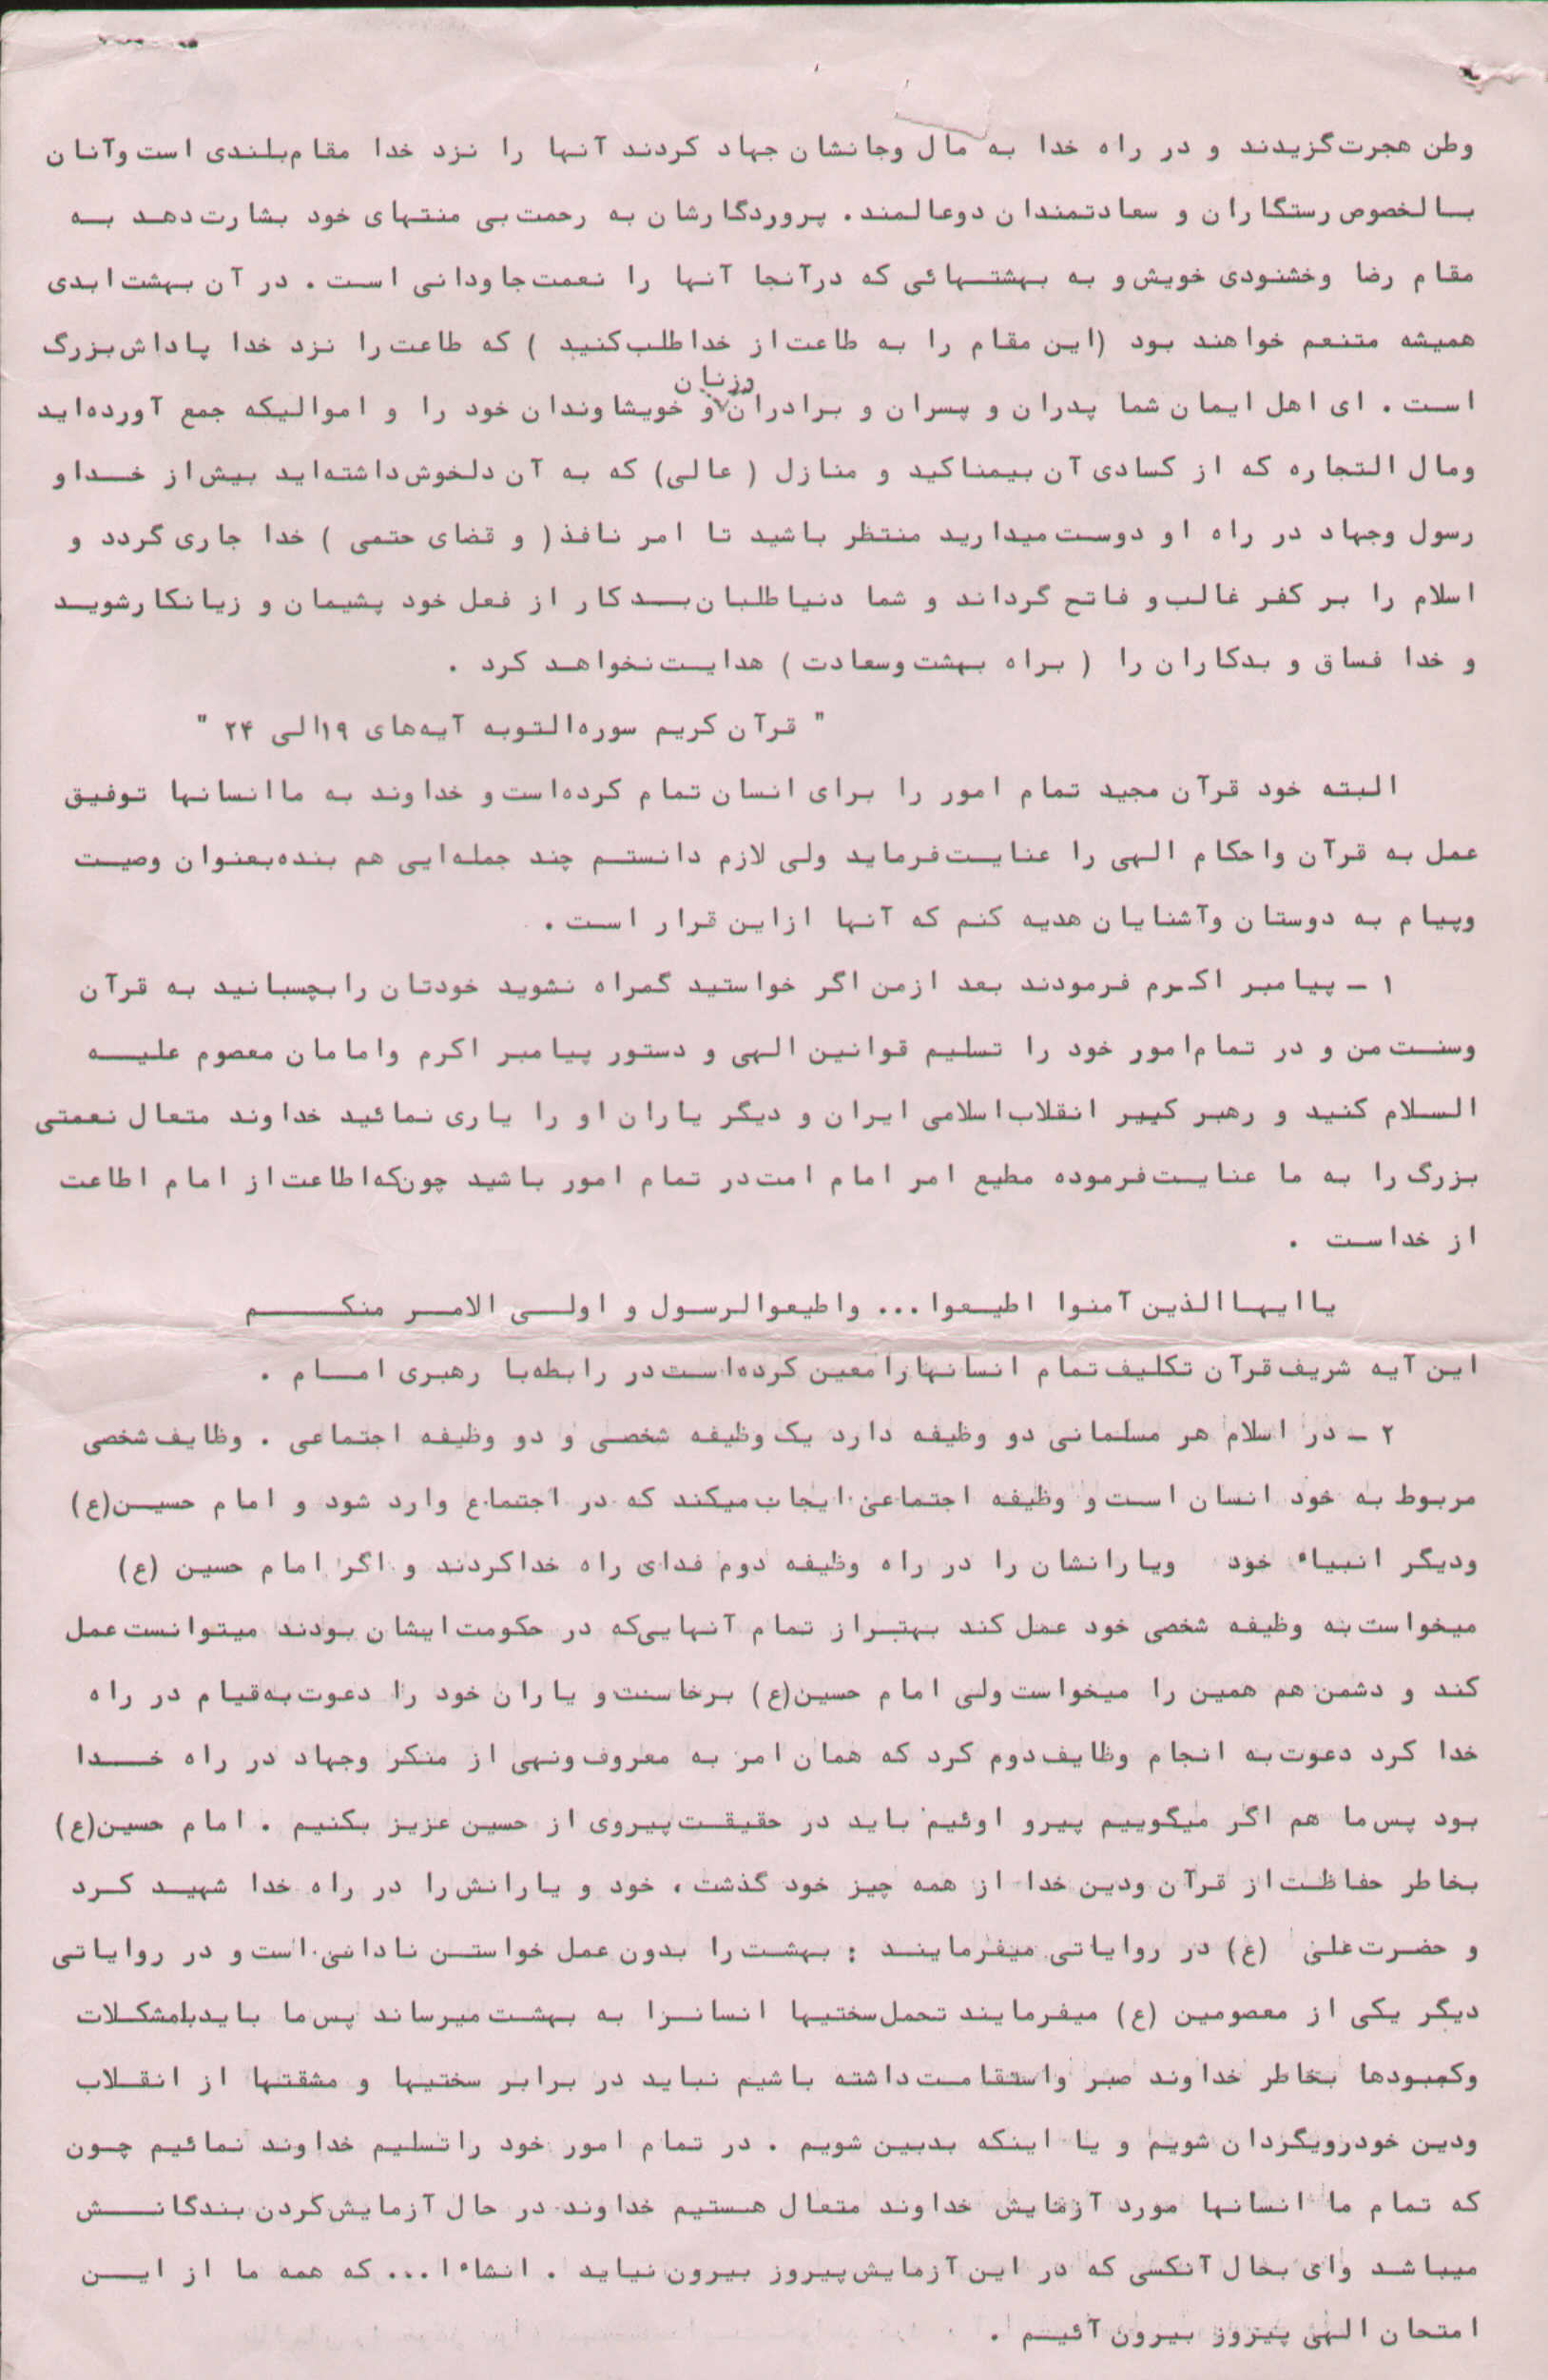 وطن هجرت گزیدند و در راه خدا به مال وجانشان جهاد کردند آنها را نزد خدا مقام بلندی است وآنان
بالخصوص رستگاران و سعادتمندان دوعالمند . پروردگارشان به رحمت بی منتهای خود بشارت دهد به
مقام رضا وخشنودی خویش و به بهشتهائی که درآنجا آنها را نعمت جاودانی است . در آن بهشت ابدی
همیشه متنعم خواهند بود (این مقام را به طاعت از خدا طلب کنید ) که طاعت را نزد خدا پاداش بزرگ
وزنان
است . ای اهل ایمان شما پدران و پسران و برادران و خویشاوندان خود را و اموالیکه جمع آورده‌اید
ومال التجاره که از کسادی آن بیمناکید و منازل ( عالی) که به آن دلخوش داشته‌اید بیش از خدا و
رسول وجهاد در راه او دوست میدارید منتظر باشید تا امر نافذ( و قضای حتمی ) خدا جاری گردد و
اسلام را بر کفر غالب و فاتح گرداند و شما دنیا طلبان بدکار از فعل خود پشیمان و زیانکار شوید
و خدا فساق و بدکاران را ( براه بهشت وسعادت ) هدایت نخواهد کرد .
" قرآن کریم سوره التوبه آیه‌های ۱۹الی ۲۴ "
البته خود قرآن مجید تمام امور را برای انسان تمام کرده‌است و خداوند به ما انسانها توفیق
عمل به قرآن واحکام الهی را عنایت فرماید ولی لازم دانستم چند جمله‌ایی هم بنده بعنوان وصیت
وپیام به دوستان وآشنایان هدیه کنم که آنها ازاین قرار است .
۱ - پیامبر اکرم فرمودند بعد ازمن اگر خواستید گمراه نشوید خودتان را بچسبانید به قرآن
وسنت من و در تمام امور خود را تسلیم قوانین الهی و دستور پیامبر اکرم وامامان معصوم علیه
السلام کنید و رهبر کبیر انقلاب اسلامی ایران و دیگر یاران او را یاری نمائید خداوند متعال نعمتی
بزرگ را به ما عنایت فرموده مطیع امر امام امت در تمام امور باشید چون‌که اطاعت از امام اطاعت
از خداست .
یا ایها الذین آمنوا اطیعوا ... واطیعوالرسول و اولی الامر منکم
این آیه شریف قرآن تکلیف تمام انسانها را معین کرده‌است در رابطه با رهبری امام .
۲ - در اسلام هر مسلمانی دو وظیفه دارد یک وظیفه شخصی و دو وظیفه اجتماعی . وظایف شخصی
مربوط به خود انسان است و وظیفه اجتماعی ایجاب میکند که در اجتماع وارد شود و امام حسین(ع)
ودیگر انبیاء خود ویارانشان را در راه وظیفه دوم فدای راه خدا کردند و اگر امام حسین (ع)
میخواست به وظیفه شخصی خود عمل کند بهتر از تمام آنهایی‌که در حکومت ایشان بودند میتوانست عمل
کند و دشمن هم همین را میخواست ولی امام حسین(ع) برخاست و یاران خود را دعوت به قیام در راه
خدا کرد دعوت به انجام وظایف دوم کرد که همان امر به معروف ونهی از منکر وجهاد در راه خدا
بود پس ما هم اگر میگوییم پیرو اوئیم باید در حقیقت پیروی از حسین عزیز بکنیم . امام حسین(ع)
بخاطر حفاظت از قرآن ودین خدا از همه چیز خود گذشت ، خود و یارانش را در راه خدا شهید کرد
و حضرت علی (ع) در روایاتی میفرمایند : بهشت را بدون عمل خواستن نادانی است و در روایاتی
دیگر یکی از معصومین (ع) میفرمایند تحمل سختیها انسانرا به بهشت میرساند پس ما باید بامشکلات
وکمبودها بخاطر خداوند صبر واستقامت داشته باشیم نباید در برابر سختیها و مشقتها از انقلاب
ودین خودرویگردان شویم و یا اینکه بدبین شویم . در تمام امور خود را تسلیم خداوند نمائیم چون
که تمام ما انسانها مورد آزمایش خداوند متعال هستیم خداوند در حال آزمایش کردن بندگانش
میباشد وای بحال آنکسی که در این آزمایش پیروز بیرون نیاید . انشاء ا... که همه ما از این
امتحان الهی پیروز بیرون آئیم .